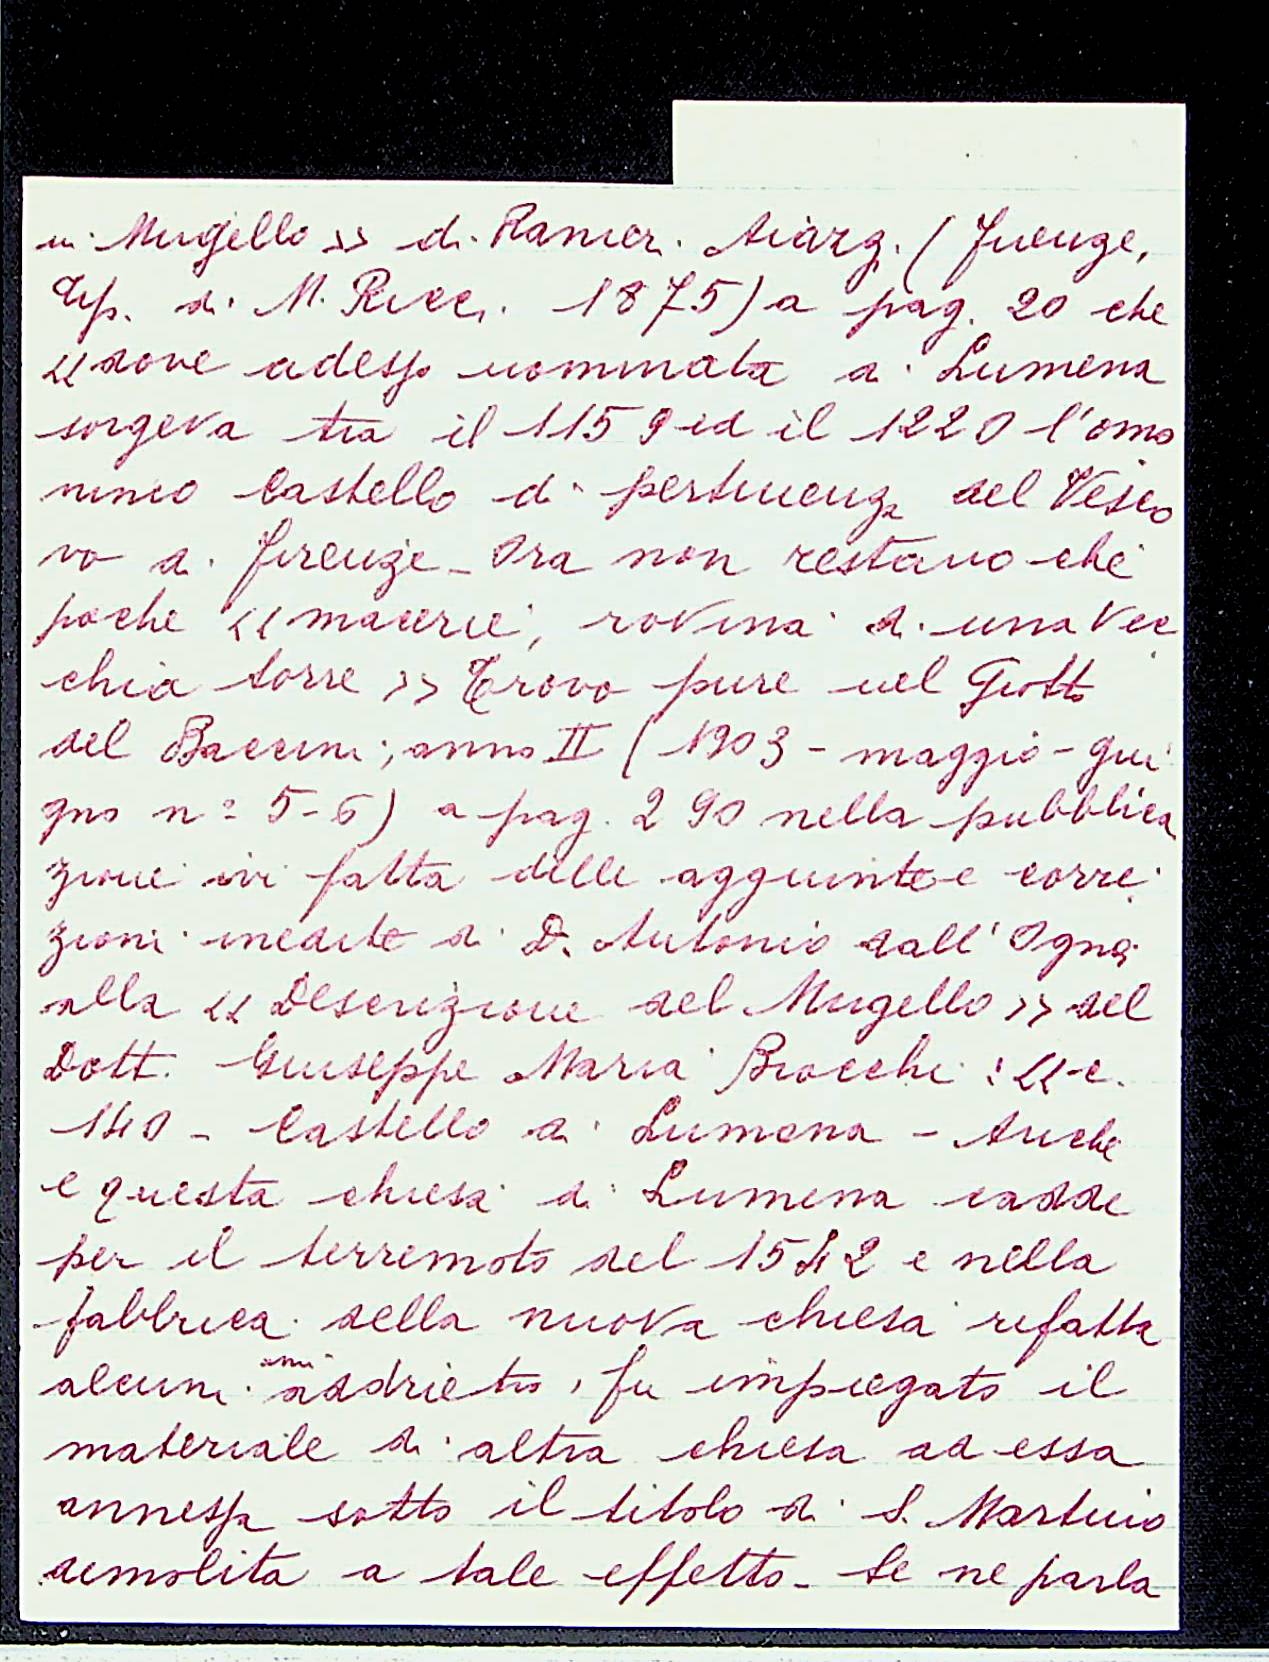 in Mugello >> di Ranieri Aiazzi (Firenze,
Tip. di M. Ricci. 1875) a pag. 20 che
<< dove adesso nominata di Lumena
sorgeva tra il 1159 ed il 1220 l'omo
nimo Castello di pertinenza del Vesco
vo di Firenze - Ora non restano che
poche << macerie, rovina di una vec
chia torre >> Trovo pure nel Giotto
del Baccini; anno II (1903 - maggio - giu
gno n° 5-6) a pag. 290 nella pubblica
zione ivi fatta delle aggiunte e corre
zioni inedite di D. Antonio dall'Ogna
alla << Descrizione del Mugello >> del
Dott. Giuseppe Maria Brocchi : << c.
140 - Castello di Lumena - Anche
e questa chiesa di Lumena cadde
per il terremoto del 1542 e nella
fabbrica della nuova chiesa rifatta
alcuni anni addrietro, fu impiegato il
materiale di altra chiesa ad essa
annessa sotto il titolo di S. Martino
demolita a tale effetto - Se ne parla